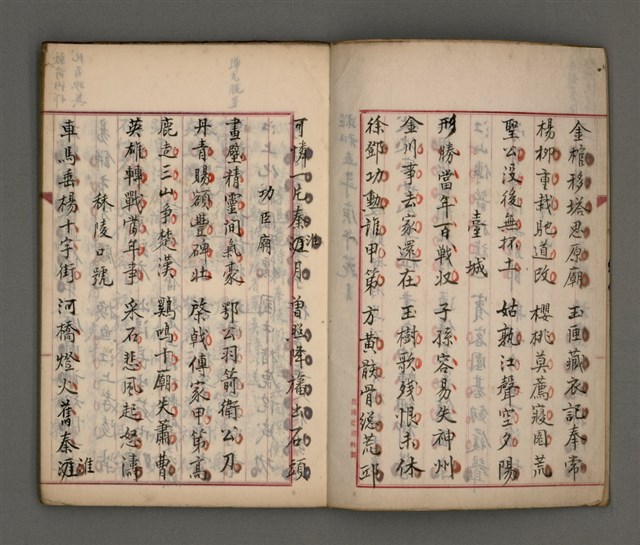 金棺移塔思原廟 玉匣藏衣記奉常
楊柳重栽肥道改 櫻桃莫薦寢園荒
聖公沒後無抔土 姑孰江聲空夕陽
臺城
形勝當年百戰收 子孫容易失神州
金川事去家還在 玉樹歌殘恨未休
徐鄧功勳誰甲第 方黄骸骨總荒邱
可憐一片秦淮月 曽照降旛出石頭
淮
功臣廟
畫壁精靈間氣豪 鄂公羽箭衛公刀
丹青賜額豐碑壯 棨戟傳家甲第高
鹿走三山争楚漢 鷄鳴十廟失蕭曹
英雄轉戰當年事 采石悲風起怒濤
秣陵口號
車馬垂楊十字街 河橋燈火舊秦涯
淮